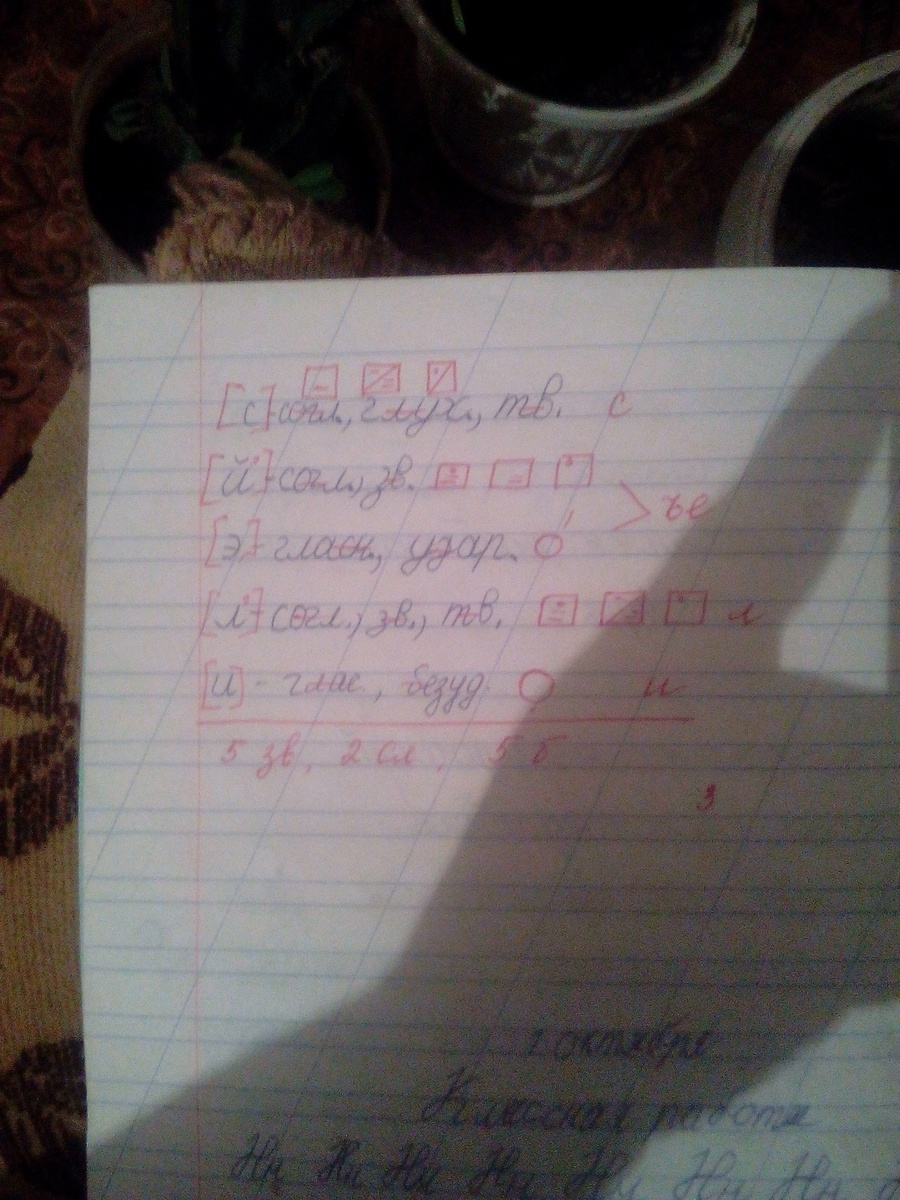 [с]-согл., глух., тв. с
[й']-согл., зв.
ъе
[э]-гласн, удар.
[л']-согл., зв., тв. л
[и] - глас., безуд. и
5 зв, 2 сл, 5 б
3
1 октября
Классная работа
Нн Нн Нн Нн Нн Нн Нн